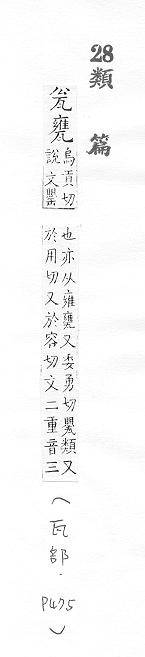 28類篇
瓮甕烏貢切
說文罌
也亦从雍甕又委勇切罌類又
於用切又於容切文二重音三
(瓦部.P475)